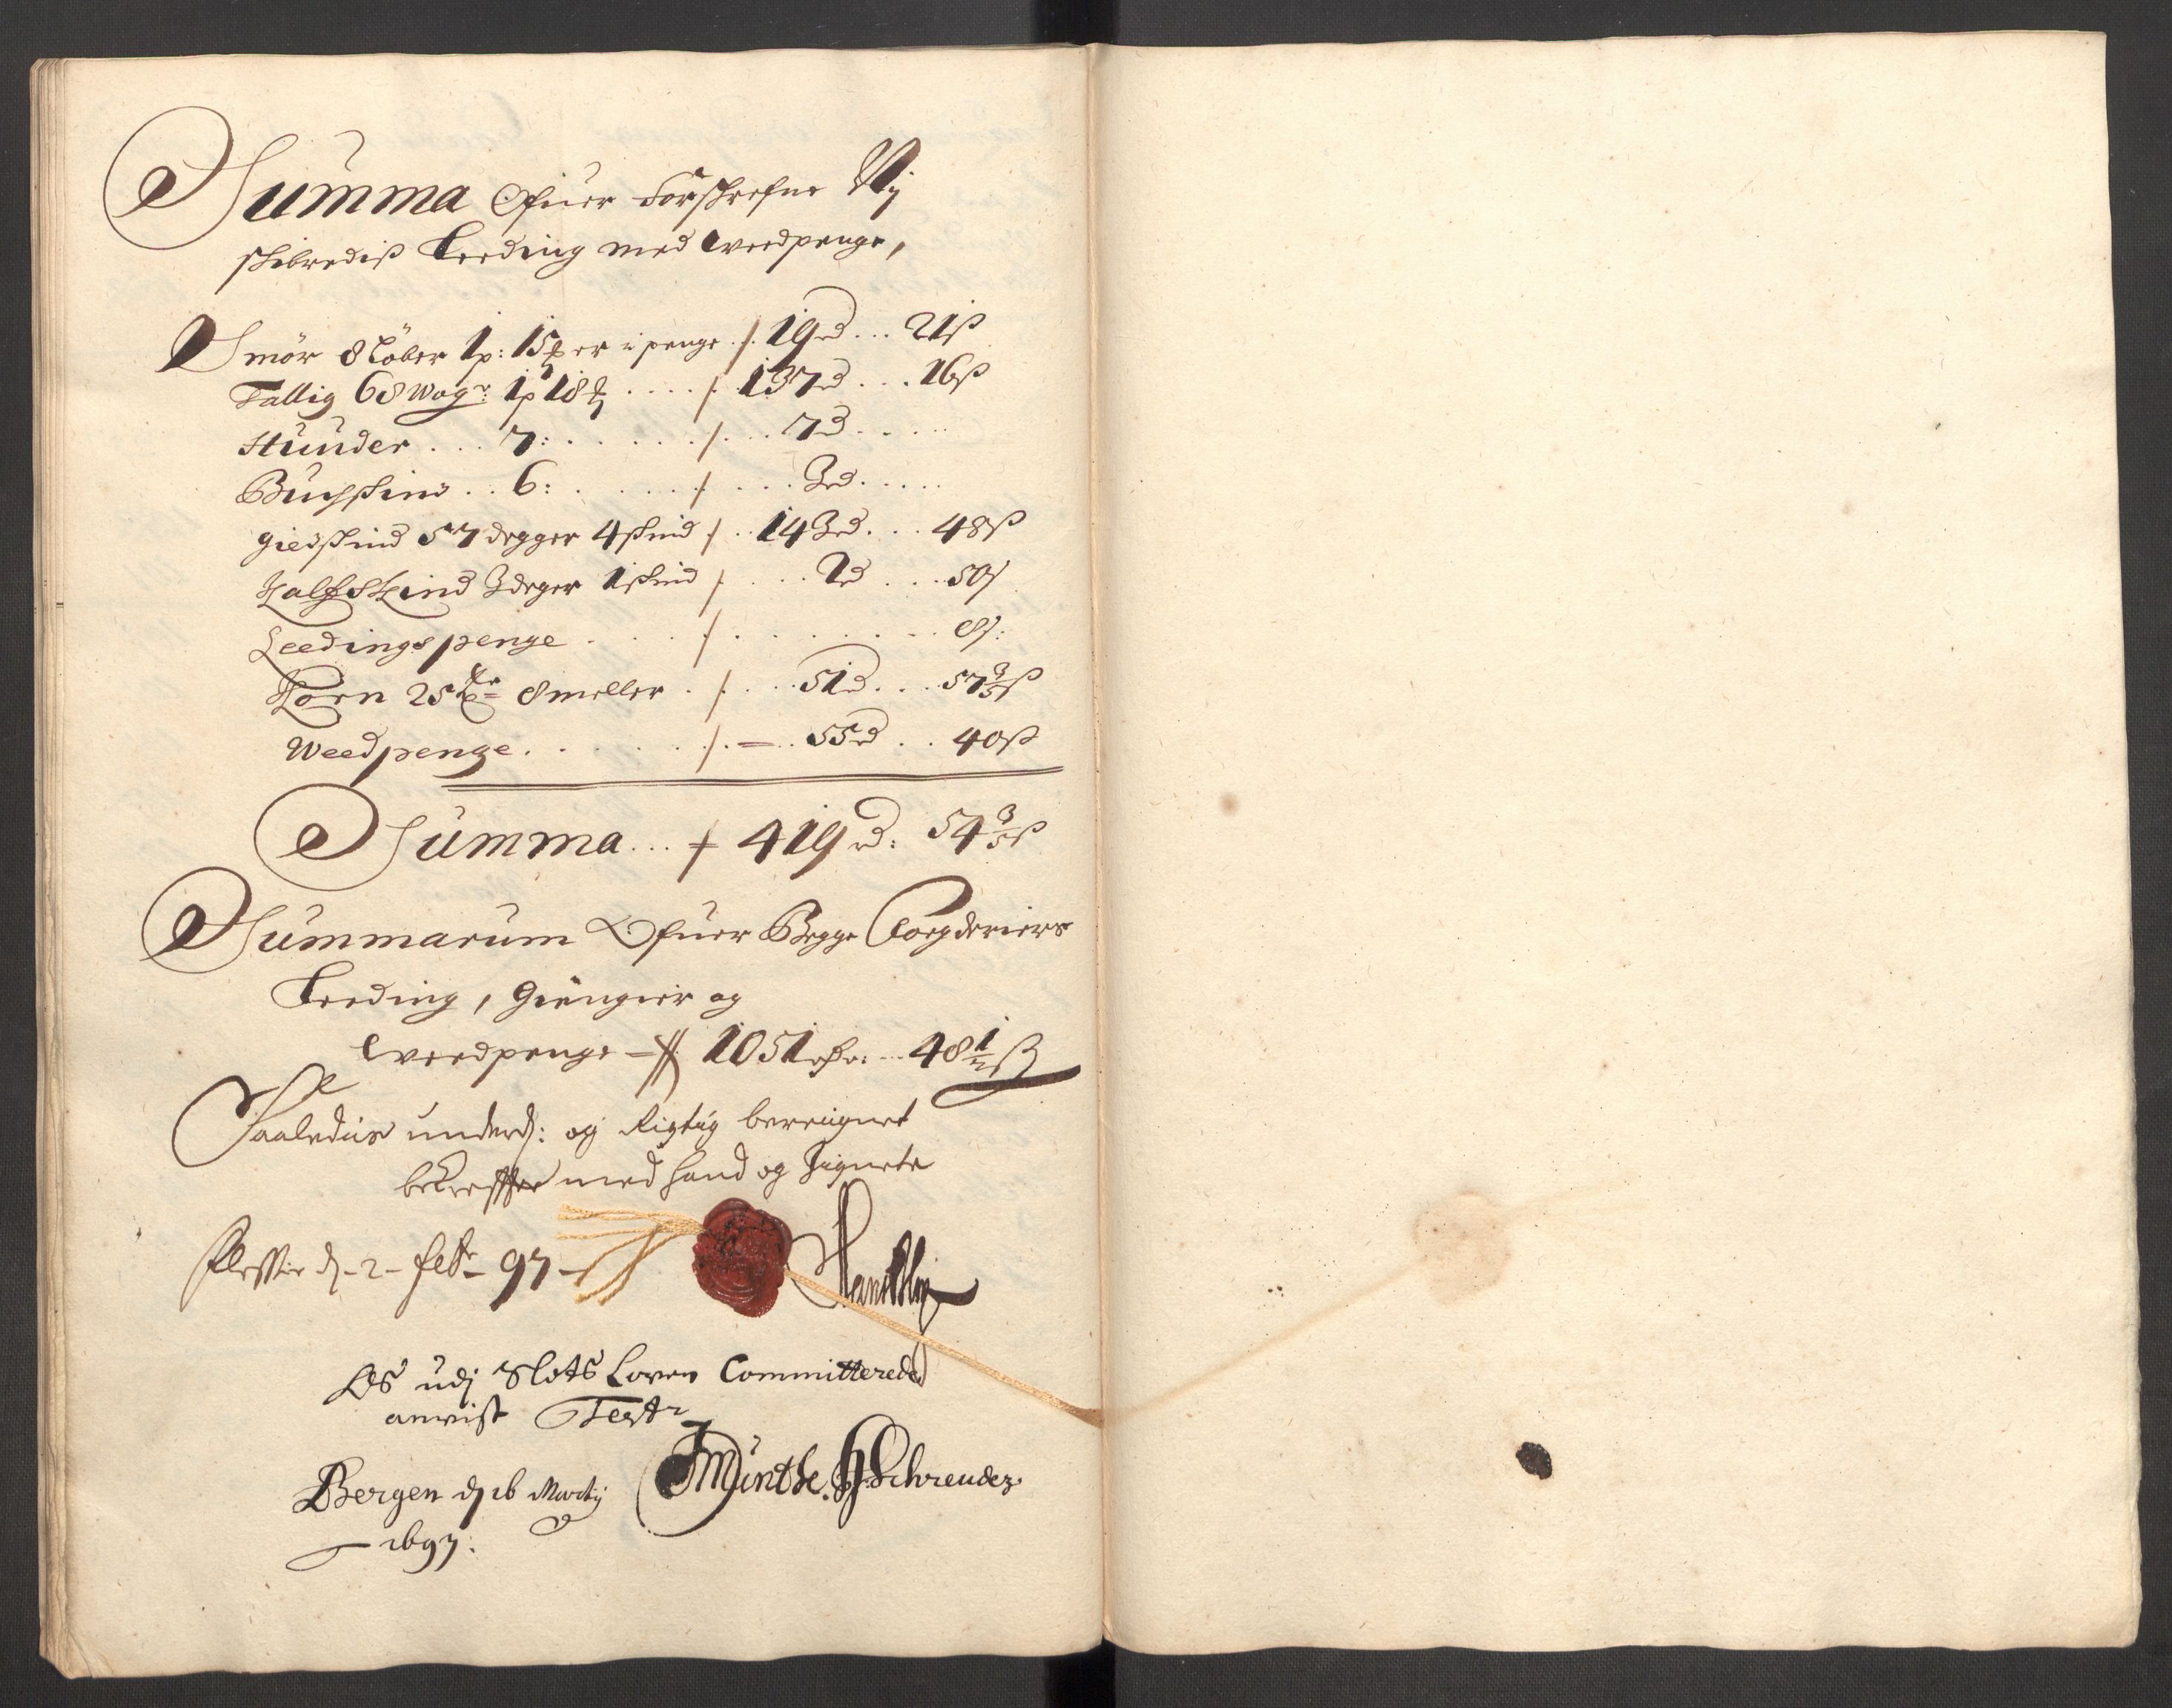 Summa Ofuer Forschrefne Vij
skibredis Leeding med Weedpenge,
Smör 8 Löber 1 p: 15 ℔ er i penge ./. 19 rd ... 21 ß
Tallig 68 Wog: 1 p 18 ℔ .... /. 137 rd ... 16 ß
Huuder ... 7: ...... /... 7 rd ....
Buchskind .. 6: ...... / ... 3 rd .....
giedskind 57 degger 4 skind / .. 143 rd ... 48 ß
Kalfskind 3 deger 1 skind / .... 2 rd ... 50 ß
Leedingspenge ..... / ......... 8 ß:
Korn 25 8 meller . /. ... 51 rd ... 57 3/5 ß
Weedpenge ....... /. = .. 55 rd .. 40 ß
Summa ... / 419 rd: 54 3/5 ß
Summarum Ofuer Begge Fogderiers
Leeding, Giengier og
Weedpenge — 1051 rdr: ... 48 ß
Saaledis underd: og Rigtig beregnet
bekreffter med haand og Zignete
d. 2 Febr 97
Os udj Slots Loven Committerede
anvist Test
Bergen d 16 Martij JMünthe. HSchreuder
1697: